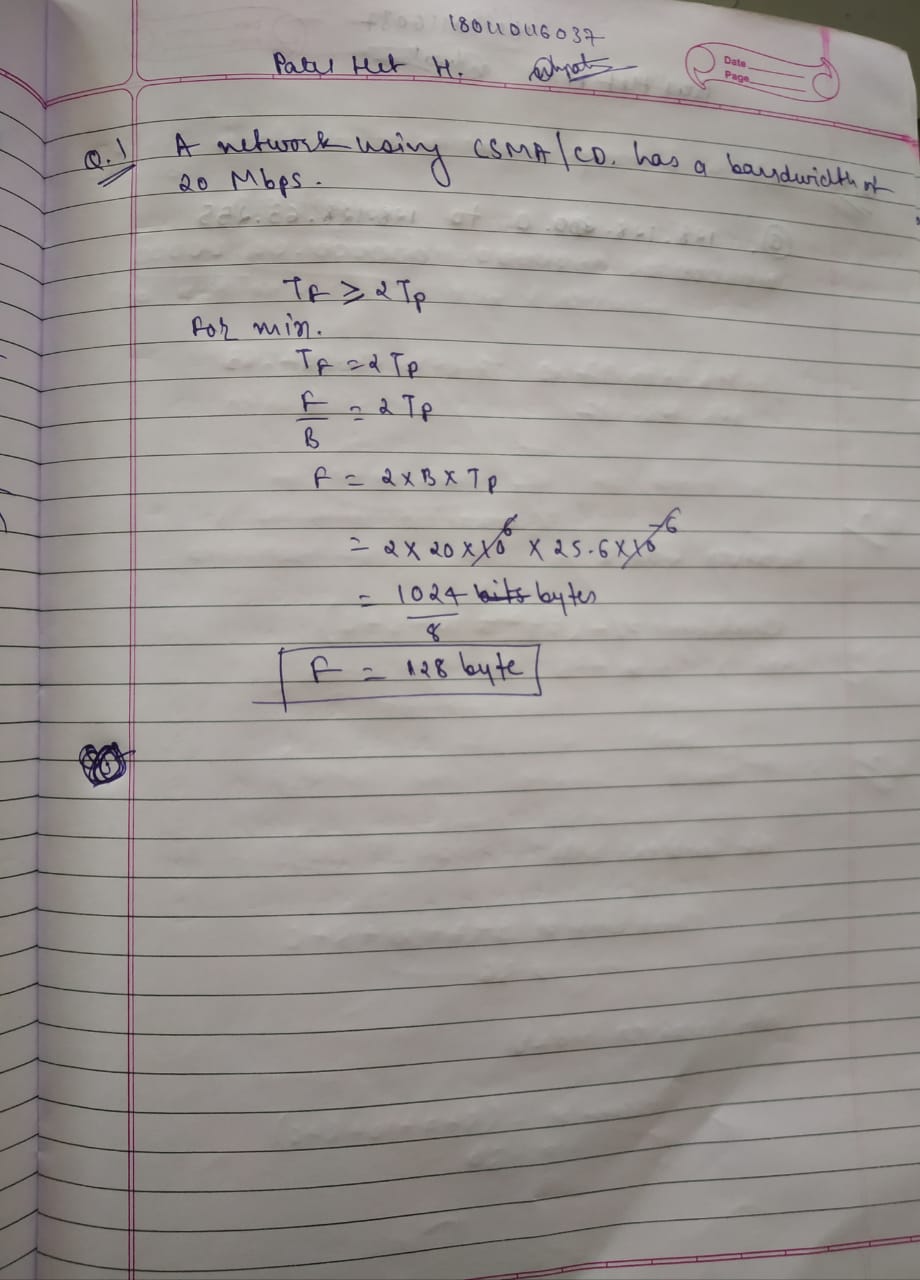 18011046037
Patel Het H.
Date
Page
Q.1 A network using CSMA/CD. has a bandwidth of
20 Mbps.
TF ≥ 2 Tp
For min.
TF = 2 Tp
F/B = 2 Tp
F = 2 x B x Tp
= 2 x 20 x 10^6 x 25.6 x 10^-6
= 1024/8 bits bytes
F = 128 byte